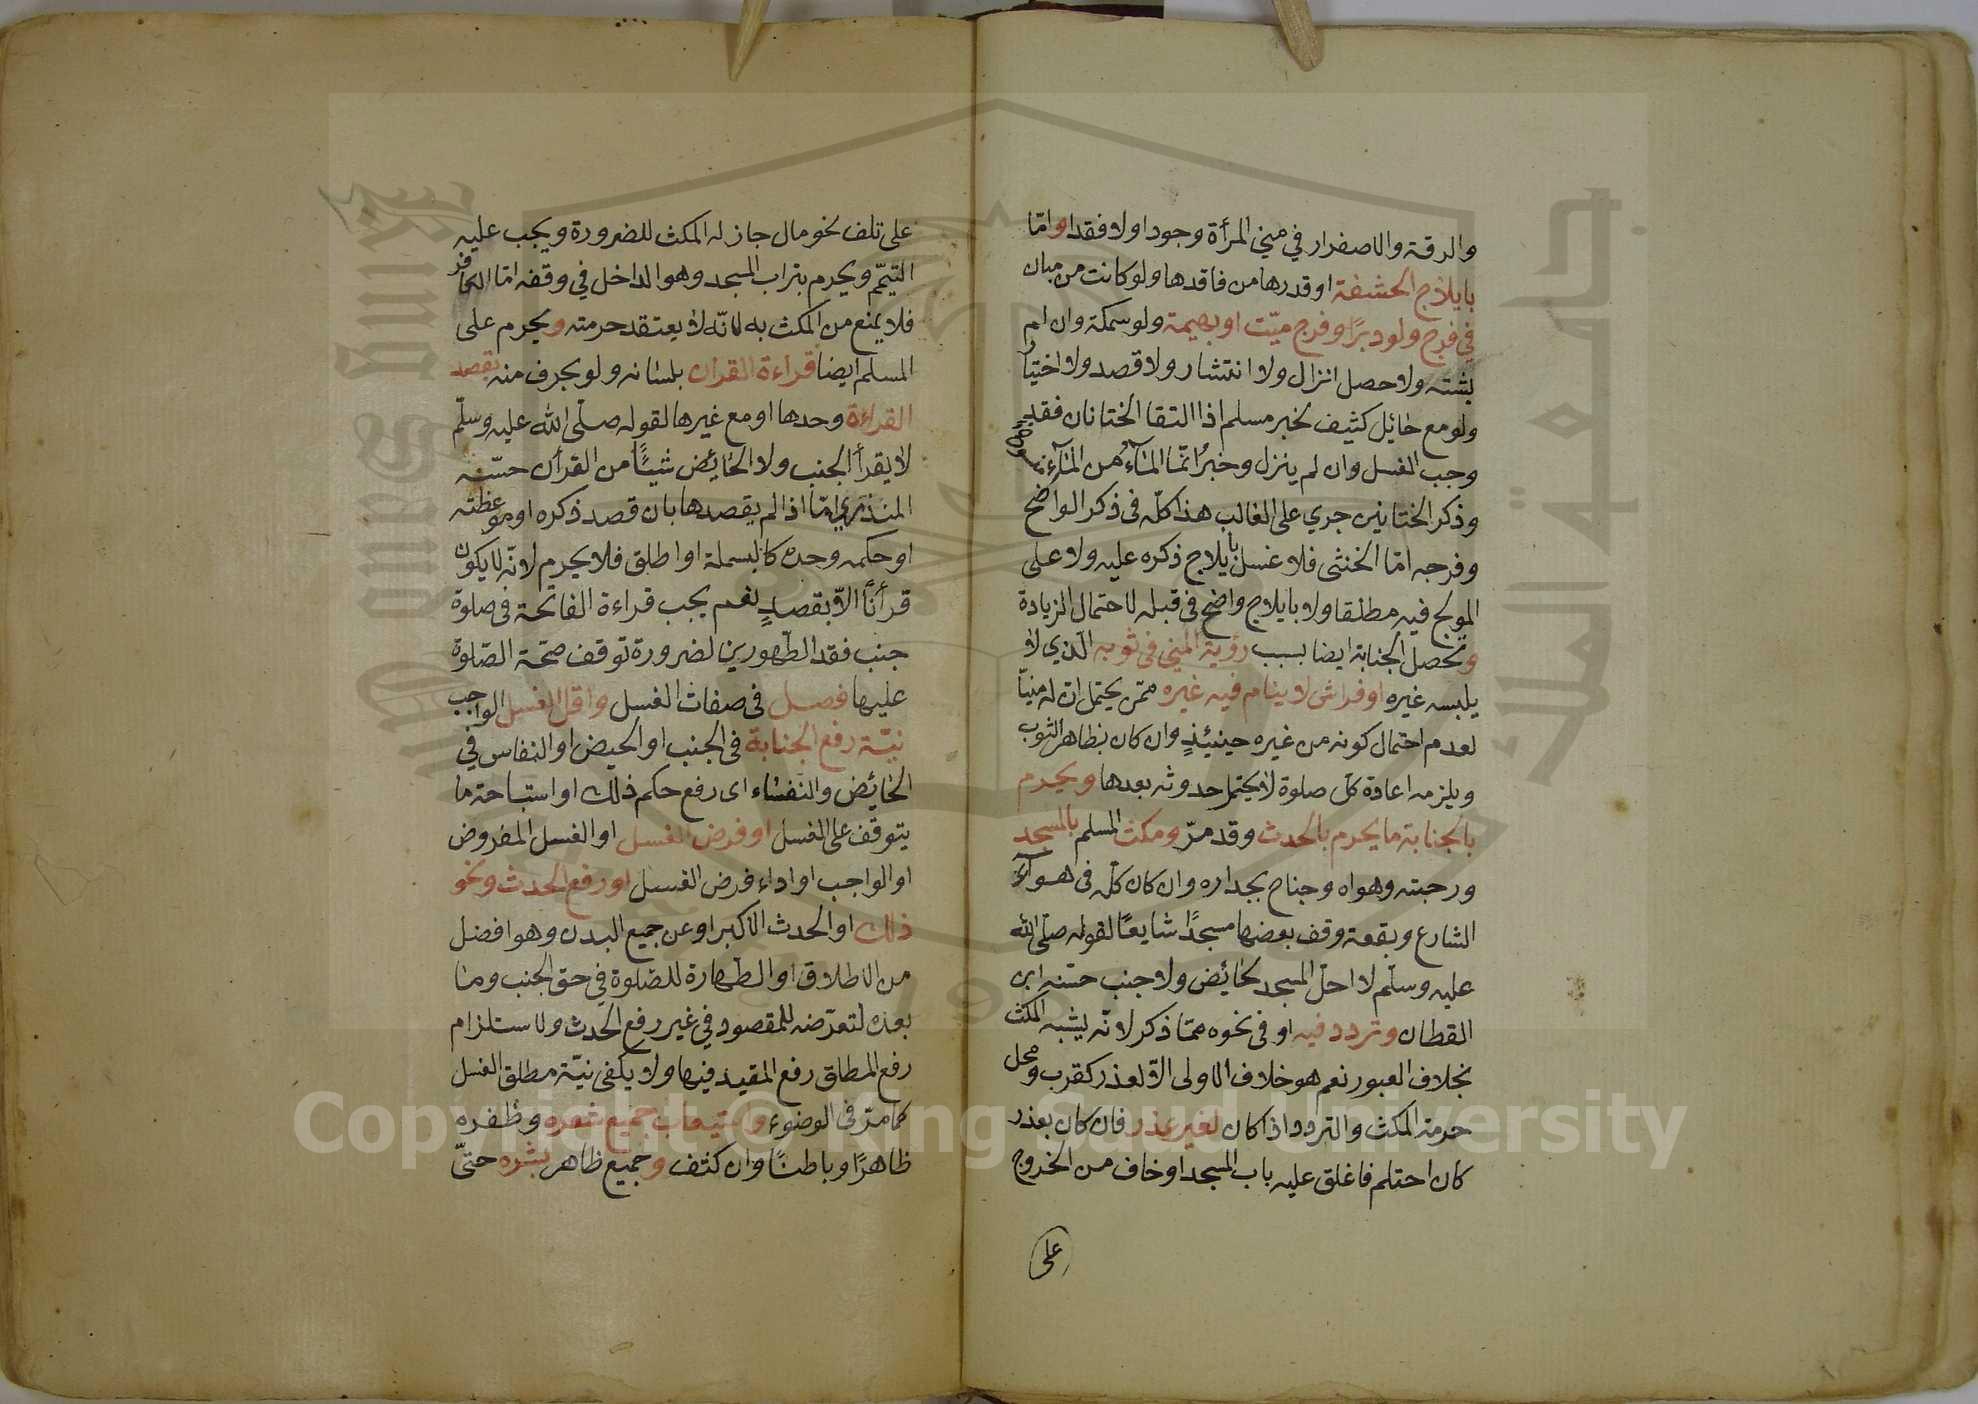 والرقة والاصفرار في مني المرأة وجودا ولا فقدا واما
بايلاج الحشفة او قدرها من فاقدها ولو كانت من مبان
في فرج ولو دبرًا وفرج ميّت او بهيمة ولو سمكة وان لم
يشته ولا حصل انزال ولا انتشار ولا قصد ولا اختيار
ولو مع حائل كثيف لخبر مسلم اذا التقا الختانان فقد
وجب الغسل وان لم ينزل وخبرُ انّما المآءُ من المآء
وذكر الختانين جري على الغالب هذا كلّه فى ذكر الواضح
وفرجه امّا الخنثى فلا غسل بايلاج ذكره عليه ولا على
المولج فيه مطلقا ولا بايلاج واضح فى قبله لاحتمال الزيادة
وتحصل الجنابة ايضا بسبب رؤية المني فى ثوبه الذي لا
يلبسه غيره او فراش لا ينام فيه غيره ممّن يحتمل ان له منيّا
لعدم احتمال كونه من غيره حينئذٍ وان كان بظاهر الثوب
ويلزمه اعادة كل صلوة لا يحتمل حدوثه بعدها ويحرم
بالجنابة ما يحرم بالحدث وقد مرّ ومكث المسلم بالمسجد
ورحبته وهواه وجناح بجداره وان كان كلّه فى هوآء
الشارع وبقعة وقف بعضها مسجدًا شايعًا لقوله صلّى الله
عليه وسلّم لا احلّ المسجد لحائض ولا جنب حسّنه ابن
القطان وتردد فيه او فى نحوه ممّا ذكر لانّه يشبه المكث
بخلاف العبور نعم هو خلاف الاولى الّا لعذر كقرب ومحل
حرمة المكث والتردد اذا كان لغير عذر فان كان بعذر
كان احتلم فاغلق عليه باب المسجد او خاف من الخروج
على
على تلف نحو مال جاز له المكث للضرورة ويجب عليه
التيمّم ويحرم بتراب المسجد وهو الداخل في وقفه امّا الكافر
فلا يمنع من المكث به لانّه لا يعتقد حرمته ويحرم على
المسلم ايضا قراءة القران بلسانه ولو بحرف منه بقصد
القراءة وحدها او مع غيرها لقوله صلّى الله عليه وسلّم
لا يقرأ الجنب ولا الحائض شيئًا من القرأن حسّنه
المنذري امّا اذا لم يقصدها بان قصد ذكره او موعظته
او حكمه وحده كالبسملة او اطلق فلا يحرم لانّه لا يكون
قرأنًا الّا بقصدٍ نعم يجب قراءة الفاتحة فى صلوة
جنب فقد الطّهورين لضرورة توقف صحّة الصّلوة
عليها فصل فى صفات الغسل واقل الغسل الواجب
نيّة رفع الجنابة فى الجنب او الحيض او النفاس في
الحائض والنّفساء اى رفع حكم ذلك او استباحة ما
يتوقف على الغسل او فرض الغسل او الغسل المفروض
او الواجب او اداء فرض الغسل او رفع الحدث ونحو
ذلك او الحدث الاكبر او عن جميع البدن وهو افضل
من الاطلاق او الطّهارة للصّلوة في حق الجنب وما
بعده لتعرّضه للمقصود في غير رفع الحدث ولاستلزام
رفع المطلق رفع المقيد فيها ولا يكفى نيّة مطلق الغسل
كما مرّ فى الوضوء واستيعاب جميع شعره وظفره
ظاهرًا وباطنًا وان كثف وجميع ظاهر بشره حتىّ
Copyright © King Saud University